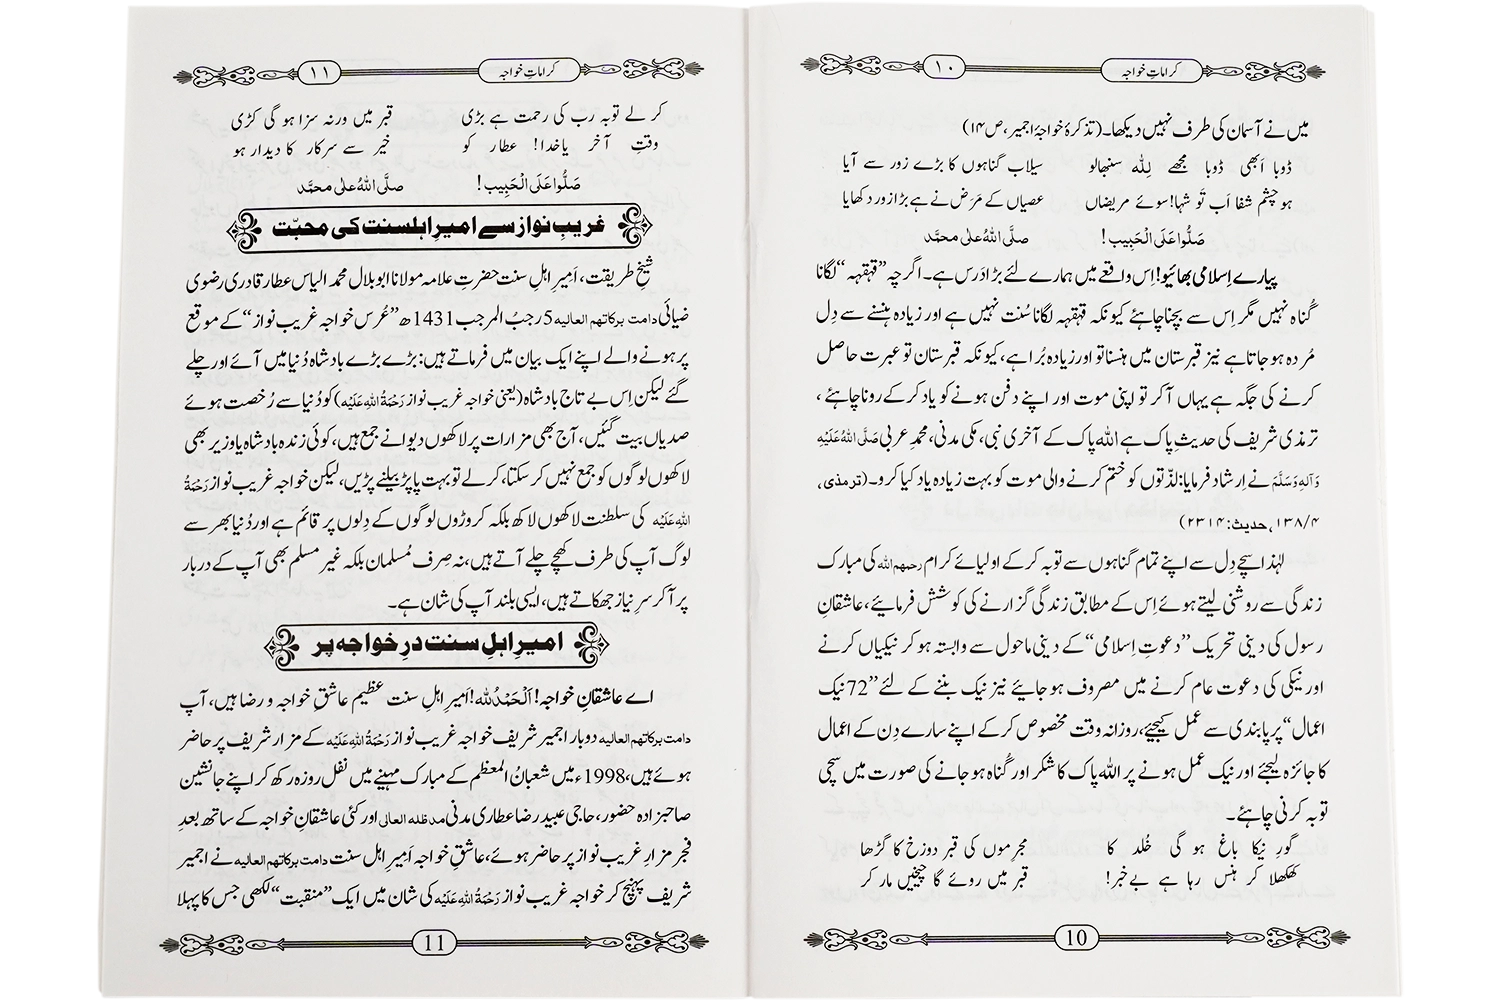 کراماتِ خواجہ
۱۰
میں نے آسمان کی طرف نہیں دیکھا۔ (تذکرۂ خواجۂ اجمیر، ص۱۴)
ڈوبا اَبھی ڈوبا مجھے لِلّٰہ سنبھالو سیلاب گناہوں کا بڑے زور سے آیا
ہو چشمِ شفا اَب تَو شہا! سوئے مریضاں عصیاں کے مَرَض نے ہے بڑا زور دکھایا
صَلُّوا عَلَی الْحَبِیب! صلَّی اللہُ علٰی محمَّد
پیارے اِسلامی بھائیو! اِس واقعے میں ہمارے لئے بڑا دَرس ہے۔ اگرچہ ”قہقہہ“ لگانا
گُناہ نہیں مگر اِس سے بچنا چاہئے کیونکہ قہقہہ لگانا سُنت نہیں ہے اور زیادہ ہنسنے سے دِل
مُردہ ہو جاتا ہے نیز قبرستان میں ہنسنا تو اور زیادہ بُرا ہے، کیونکہ قبرستان تو عبرت حاصل
کرنے کی جگہ ہے یہاں آکر تو اپنی موت اور اپنے دفن ہونے کو یاد کرکے رونا چاہئے،
ترمذی شریف کی حدیثِ پاک ہے اللہ پاک کے آخری نبی، مکی مدنی، محمدِ عربی صَلَّی اللہُ عَلَیْہِ
وَاٰلِہٖ وَسَلَّمَ نے اِرشاد فرمایا: لذّتوں کو ختم کرنے والی موت کو بہت زیادہ یاد کیا کرو۔ (ترمذی،
۱۳۸/۴، حدیث: ۲۳۱۴)
لہٰذا سچے دِل سے اپنے تمام گناہوں سے توبہ کرکے اولیائے کرام رحمہم اللہ کی مبارک
زندگی سے روشنی لیتے ہوئے اِس کے مطابق زندگی گزارنے کی کوشش فرمایئے، عاشقانِ
رسول کی دینی تحریک ”دعوتِ اِسلامی“ کے دینی ماحول سے وابستہ ہو کر نیکیاں کرنے
اور نیکی کی دعوت عام کرنے میں مصروف ہو جایئے نیز نیک بننے کے لئے ”72 نیک
اعمال“ پر پابندی سے عمل کیجئے، روزانہ وقت مخصوص کرکے اپنے سارے دِن کے اعمال
کا جائزہ لیجئے اور نیک عمل ہونے پر اللہ پاک کا شکر اور گُناہ ہو جانے کی صورت میں سچی
توبہ کرنی چاہئے۔
گورِ نیکا باغ ہو گی خُلد کا مجرموں کی قبر دوزخ کا گڑھا
کھکھلا کر ہنس رہا ہے بےخبر! قبر میں روئے گا چیخیں مار کر
10
کراماتِ خواجہ
۱۱
کر لے توبہ رب کی رحمت ہے بڑی قبر میں ورنہ سزا ہو گی کڑی
وقتِ آخر یاخدا! عطار کو خیر سے سرکار کا دیدار ہو
صَلُّوا عَلَی الْحَبِیب! صلَّی اللہُ علٰی محمَّد
غریبِ نواز سے امیرِ اہلسنت کی محبّت
شیخِ طریقت، اَمیرِ اہلِ سنت حضرتِ علامہ مولانا ابو بلال محمد الیاس عطار قادری رضوی
ضیائی دامت برکاتہم العالیہ 5 رجبُ المرجب 1431ھ ”عُرسِ خواجہ غریبِ نواز“ کے موقع
پر ہونے والے اپنے ایک بیان میں فرماتے ہیں: بڑے بڑے بادشاہ دُنیا میں آئے اور چلے
گئے لیکن اِس بے تاج بادشاہ (یعنی خواجہ غریب نواز رَحْمَۃُ اللہِ عَلَیْہ) کو دُنیا سے رُخصت ہوئے
صدیاں بیت گئیں، آج بھی مزارات پر لاکھوں دیوانے جمع ہیں، کوئی زندہ بادشاہ یا وزیر بھی
لاکھوں لوگوں کو جمع نہیں کر سکتا، کرلے تو بہت پاپڑ بیلنے پڑیں، لیکن خواجہ غریب نواز رَحْمَۃُ
اللہِ عَلَیْہ کی سلطنت لاکھوں لاکھ بلکہ کروڑوں لوگوں کے دِلوں پر قائم ہے اور دُنیا بھر سے
لوگ آپ کی طرف کھچے چلے آتے ہیں، نہ صِرف مُسلمان بلکہ غیر مسلم بھی آپ کے دربار
پر آکر سرِ نیاز جھکاتے ہیں، ایسی بلند آپ کی شان ہے۔
امیرِ اہلِ سنت درِ خواجہ پر
اے عاشقانِ خواجہ! اَلْحَمْدُ لِلّٰہ! اَمیرِ اہلِ سنت عظیم عاشقِ خواجہ و رضا ہیں، آپ
دامت برکاتہم العالیہ دوبار اجمیر شریف خواجہ غریب نواز رَحْمَۃُ اللہِ عَلَیْہ کے مزار شریف پر حاضر
ہوئے ہیں، 1998ء میں شعبانُ المعظم کے مبارک مہینے میں نفل روزہ رکھ کر اپنے جانشین
صاحبزادہ حضور، حاجی عبید رضا عطاری مدنی مدظلہ العالی اور کئی عاشقانِ خواجہ کے ساتھ بعدِ
فجر مزارِ غریب نواز پر حاضر ہوئے، عاشقِ خواجہ اَمیرِ اہلِ سنت دامت برکاتہم العالیہ نے اجمیر
شریف پہنچ کر خواجہ غریب نواز رَحْمَۃُ اللہِ عَلَیْہ کی شان میں ایک ”منقبت“ لکھی جس کا پہلا
11